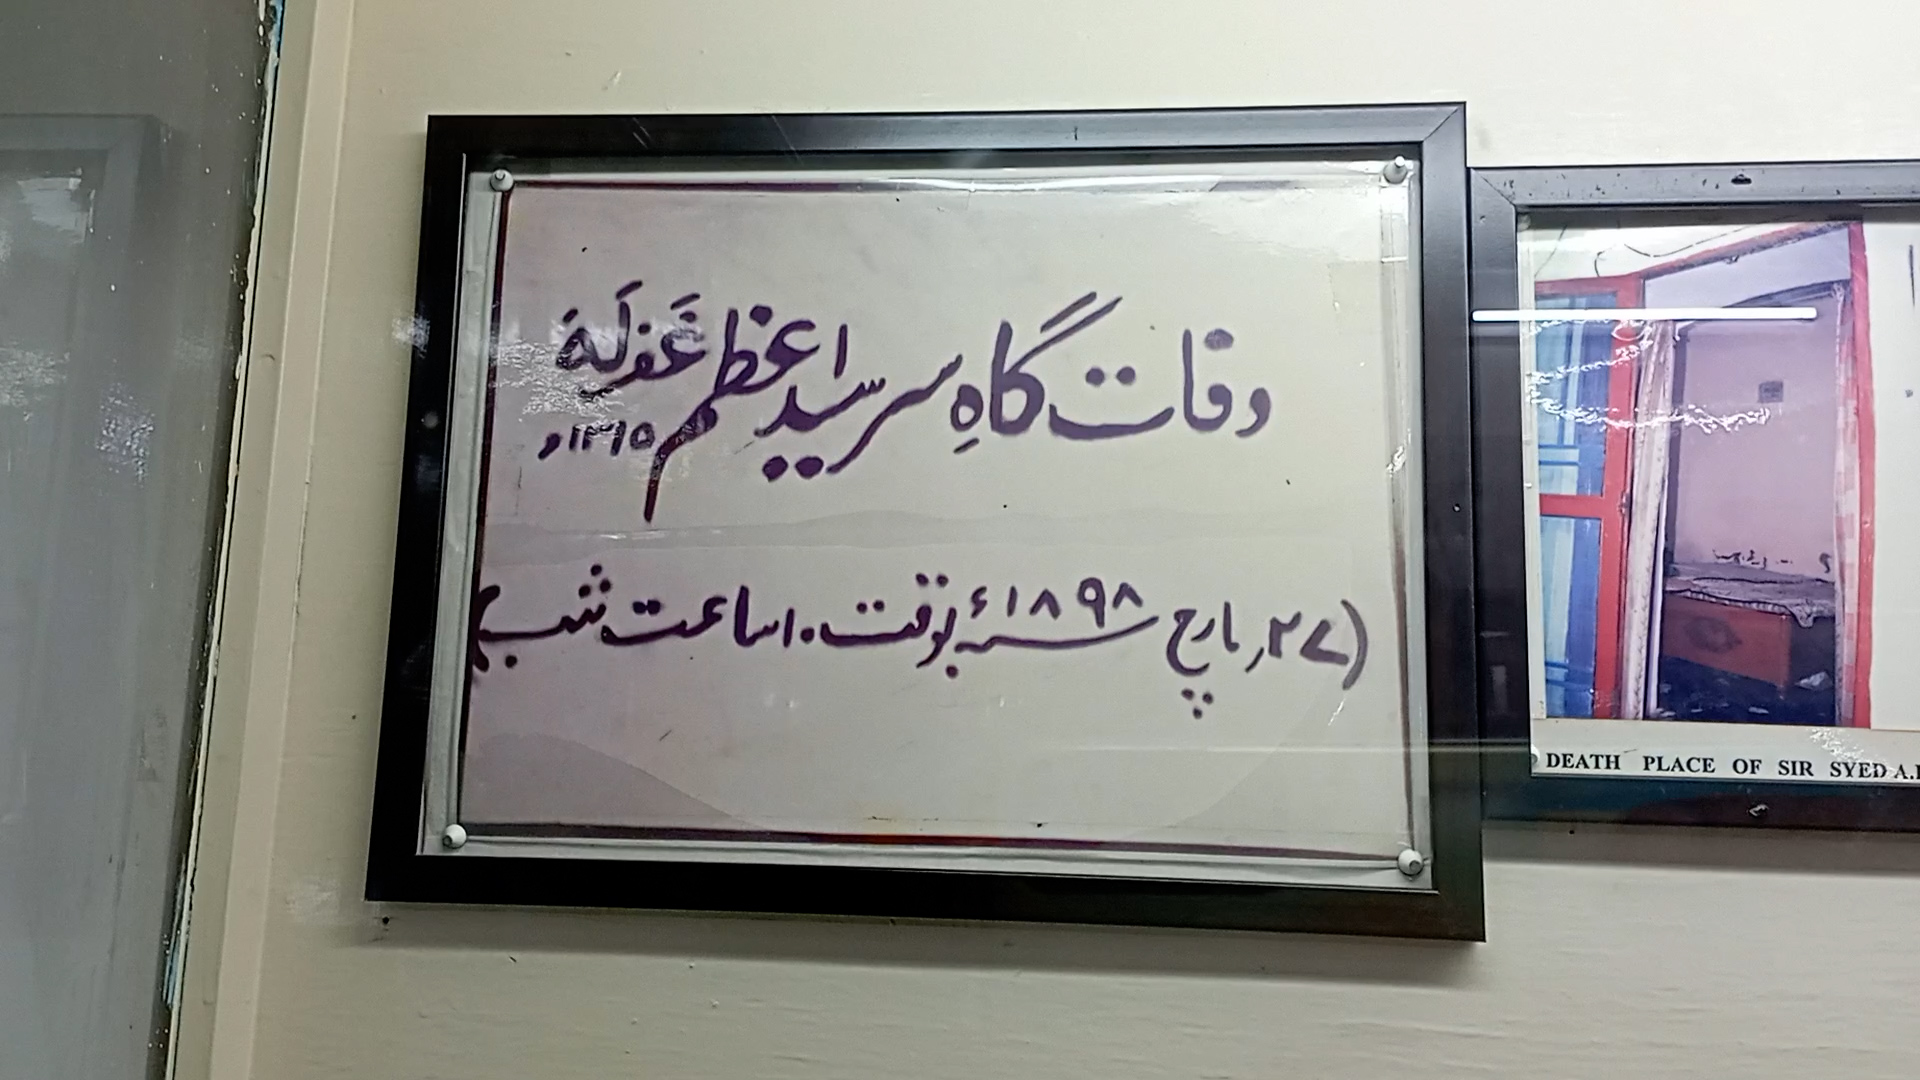 وفات گاہِ سر سید اعظم غَفَرلَہٗ ۱۳۱۵ھ
(۲۷؍ مارچ ۱۸۹۸ء بوقت ۱۰ ساعت شب)
DEATH PLACE OF SIR SYED A.